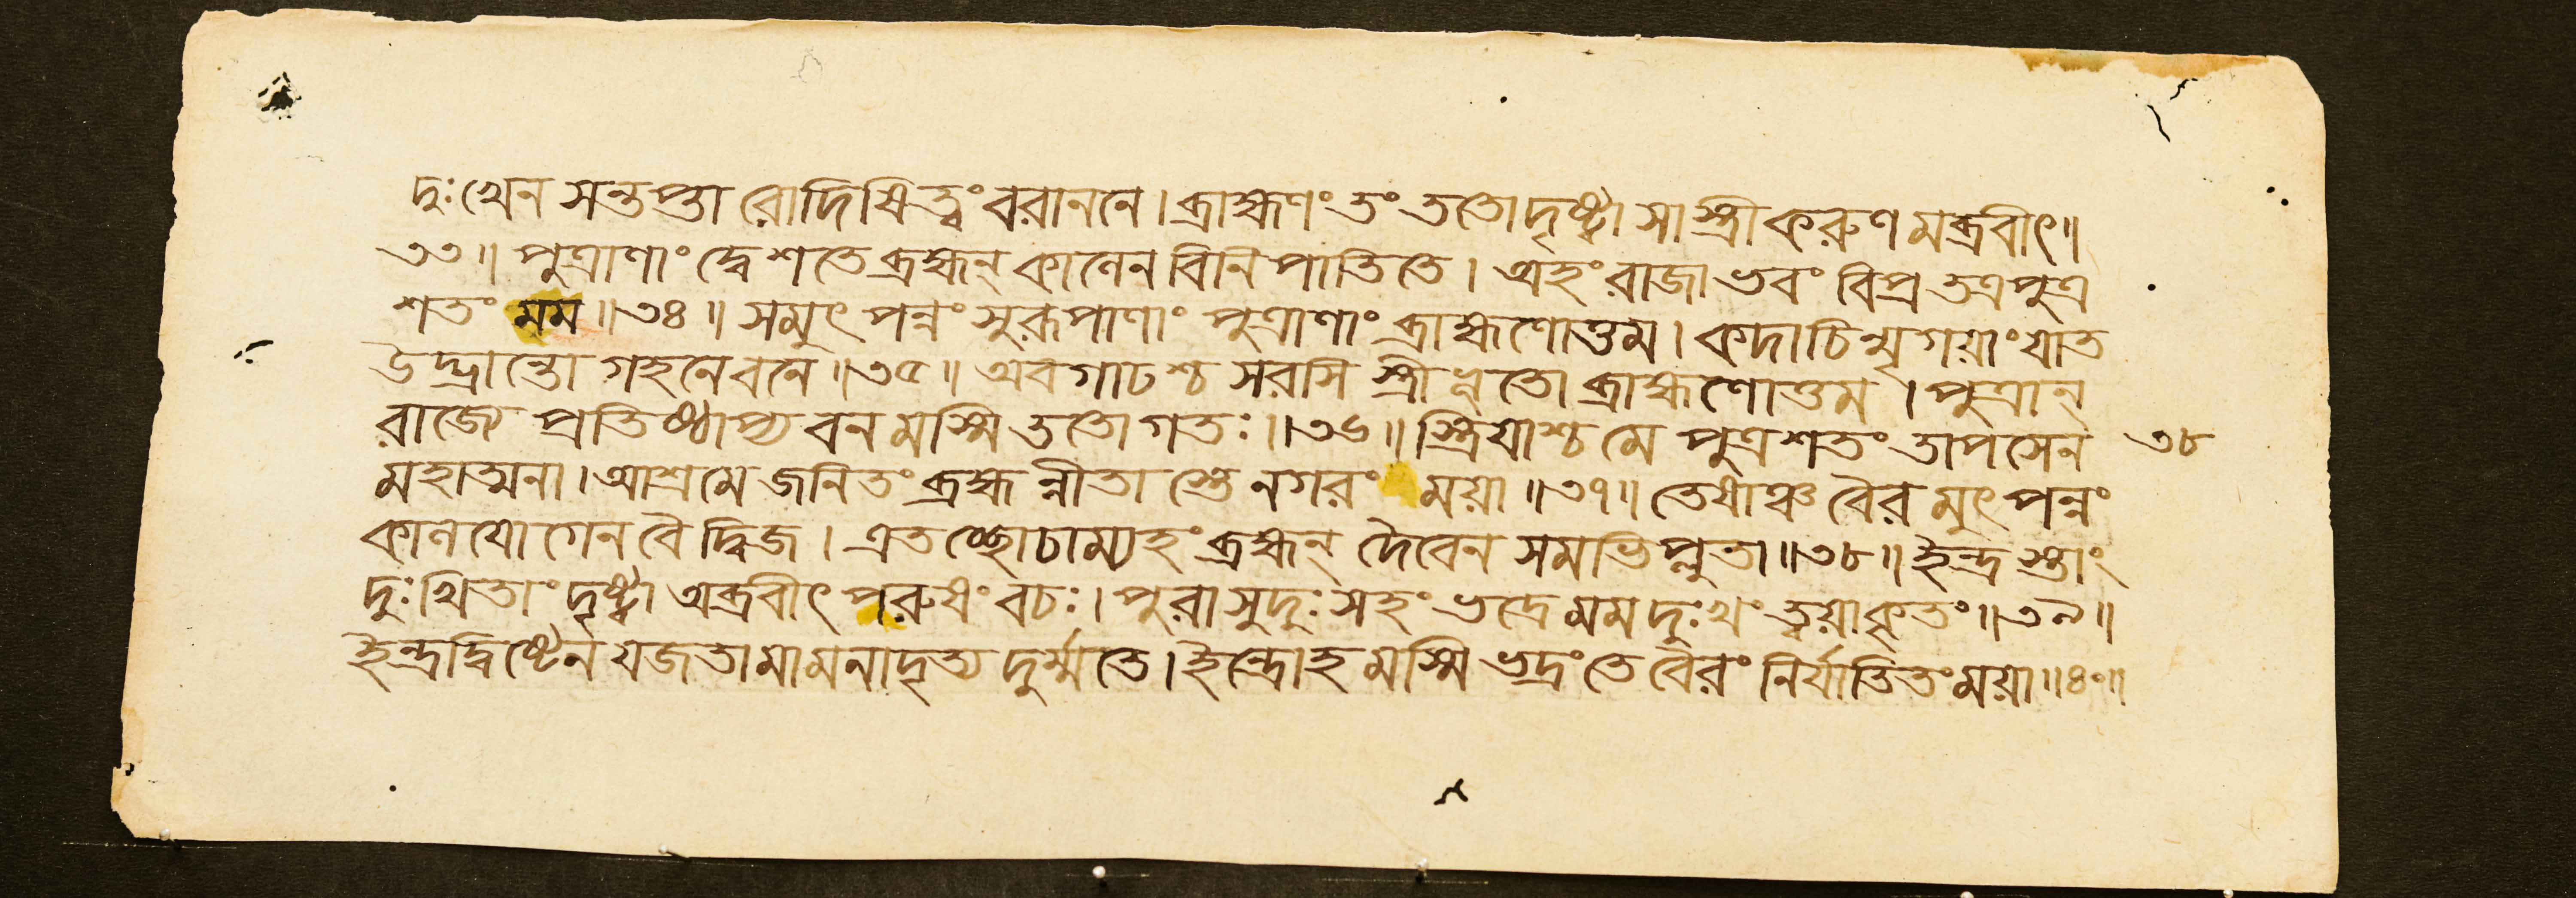 দুঃখেন সন্তপ্তা রোদিষিত্বং বরাননে। ব্রাহ্মণং তং ততো দৃষ্ট্বা সা স্ত্রী করুণমব্রবীৎ॥
৩৩॥ পুত্রাণাং দ্বে শতে ব্রহ্মন্ কালেন বিনিপাতিতে। অহং রাজাভবং বিপ্র তত্র পুত্র
শতং মম॥৩৪॥ সমুৎপন্নং সুরূপাণাং পুত্রাণাং ব্রাহ্মণোত্তম। কদাচিন্মৃগয়াং যাত
উদ্ভ্রান্তো গহনে বনে॥৩৫॥ অবগাঢশ্চ সরসি স্ত্রীভূতো ব্রাহ্মণোত্তম। পুত্রান্
রাজ্যে প্রতিষ্ঠাপ্য বনমস্মি ততো গতঃ॥৩৬॥ স্ত্রিয়াশ্চ মে পুত্রশতং তাপসেন ৩৮
মহাত্মনা। আশ্রমে জনিতং ব্রহ্মন্নীতাস্তে নগরং ময়া॥৩৭॥ তেষাঞ্চ বৈরমুৎপন্নং
কালযোগেন বৈ দ্বিজ। এতচ্ছোচাম্যহং ব্রহ্মন্ দৈবেন সমভিপ্লুতা॥৩৮॥ ইন্দ্রস্তাং
দুঃখিতাং দৃষ্ট্বা অব্রবীৎ পরুষং বচঃ। পুরা সুদুঃসহং ভদ্রে মম দুঃখং ত্বয়া কৃতং॥৩৯॥
ইন্দ্রদ্বিষ্টেন যজতা মামনাদৃত্য দুর্ম্মতে। ইন্দ্রোহমস্মি ভদ্রং তে বৈরং নির্যাতিতং ময়া॥৪০॥